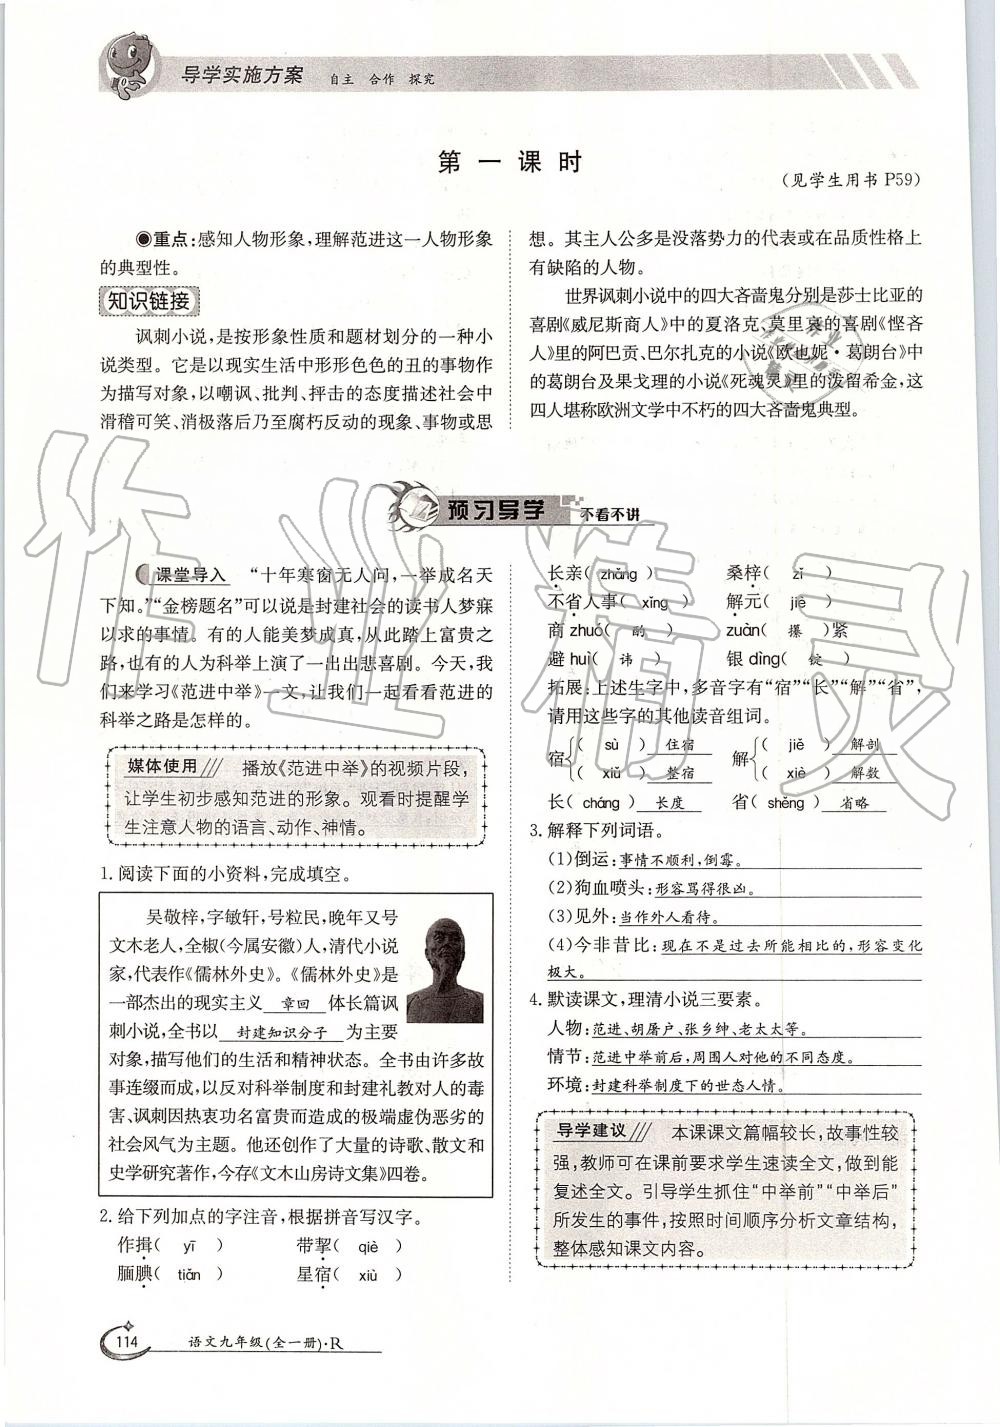 导学实施方案 自主 合作 探究
第一课时
(见学生用书 P59)
◉重点:感知人物形象,理解范进这一人物形象
的典型性。
知识链接
讽刺小说,是按形象性质和题材划分的一种小
说类型。它是以现实生活中形形色色的丑的事物作
为描写对象,以嘲讽、批判、抨击的态度描述社会中
滑稽可笑、消极落后乃至腐朽反动的现象、事物或思
想。其主人公多是没落势力的代表或在品质性格上
有缺陷的人物。
世界讽刺小说中的四大吝啬鬼分别是莎士比亚的
喜剧《威尼斯商人》中的夏洛克、莫里哀的喜剧《悭吝
人》里的阿巴贡、巴尔扎克的小说《欧也妮·葛朗台》中
的葛朗台及果戈理的小说《死魂灵》里的泼留希金,这
四人堪称欧洲文学中不朽的四大吝啬鬼典型。
预习导学 不看不讲
课堂导入 “十年寒窗无人问,一举成名天
下知。”“金榜题名”可以说是封建社会的读书人梦寐
以求的事情。有的人能美梦成真,从此踏上富贵之
路,也有的人为科举上演了一出出悲喜剧。今天,我
们来学习《范进中举》一文,让我们一起看看范进的
科举之路是怎样的。
媒体使用 播放《范进中举》的视频片段,
让学生初步感知范进的形象。观看时提醒学
生注意人物的语言、动作、神情。
1. 阅读下面的小资料,完成填空。
吴敬梓,字敏轩,号粒民,晚年又号
文木老人,全椒(今属安徽)人,清代小说
家,代表作《儒林外史》。《儒林外史》是
一部杰出的现实主义 章回 体长篇讽
刺小说,全书以 封建知识分子 为主要
对象,描写他们的生活和精神状态。全书由许多故
事连缀而成,以反对科举制度和封建礼教对人的毒
害、讽刺因热衷功名富贵而造成的极端虚伪恶劣的
社会风气为主题。他还创作了大量的诗歌、散文和
史学研究著作,今存《文木山房诗文集》四卷。
2. 给下列加点的字注音,根据拼音写汉字。
作揖( yī ) 带挈( qiè )
腼腆( tiǎn ) 星宿( xiù )
长亲( zhǎng ) 桑梓( zǐ )
不省人事( xǐng ) 解元( jiè )
商 zhuó( 酌 ) zuàn( 攥 )紧
避 huì( 讳 ) 银 dìng( 锭 )
拓展:上述生字中,多音字有“宿”“长”“解”“省”,
请用这些字的其他读音组词。
宿{( sù ) 住宿 ( xiǔ ) 整宿 解{( jiě ) 解剖 ( xiè ) 解数
长( cháng ) 长度 省( shěng ) 省略
3. 解释下列词语。
(1)倒运:事情不顺利,倒霉。
(2)狗血喷头:形容骂得很凶。
(3)见外:当作外人看待。
(4)今非昔比:现在不是过去所能相比的,形容变化
极大。
4. 默读课文,理清小说三要素。
人物:范进、胡屠户、张乡绅、老太太等。
情节:范进中举前后,周围人对他的不同态度。
环境:封建科举制度下的世态人情。
导学建议 本课课文篇幅较长,故事性较
强,教师可在课前要求学生速读全文,做到能
复述全文。引导学生抓住“中举前”“中举后”
所发生的事件,按照时间顺序分析文章结构,
整体感知课文内容。
114 语文九年级(全一册)·R
作业精灵